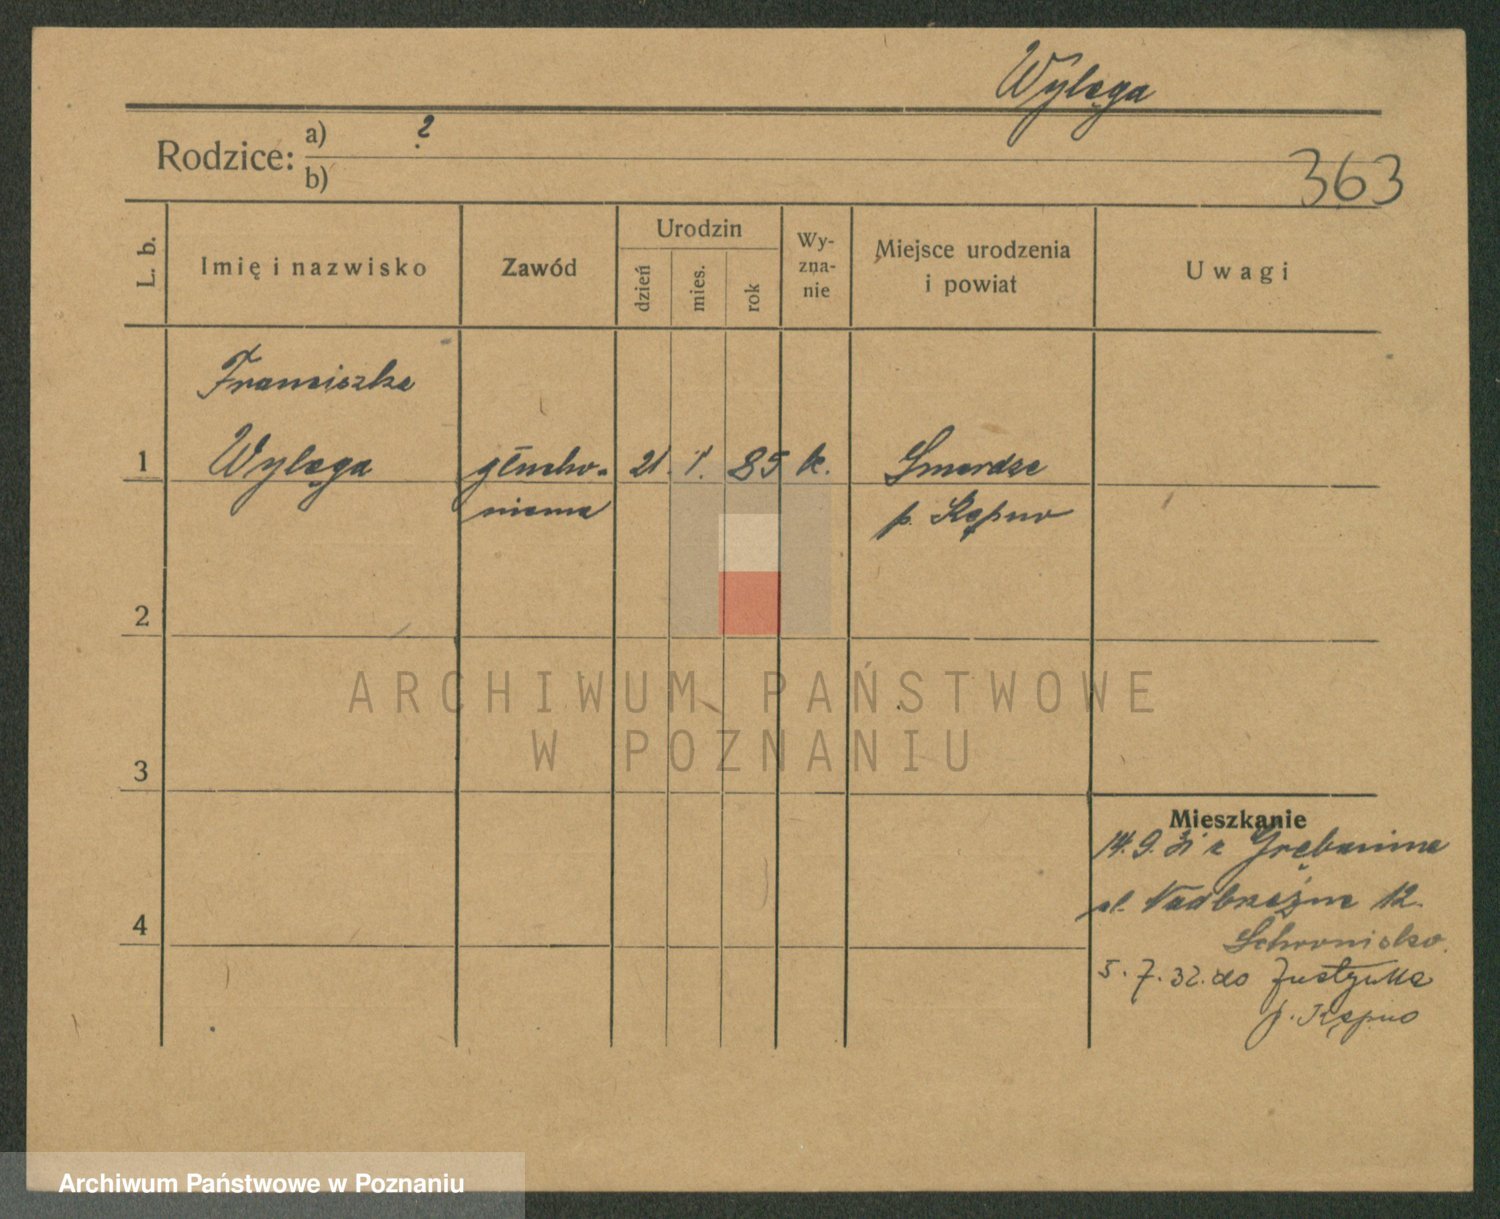 Wylęga
Rodzice: a) ?
b)
363
L. b.
Imię i nazwisko
Zawód
Urodzin
dzień
mies.
rok
Wy-
zna-
nie
Miejsce urodzenia
i powiat
Uwagi
Franciszka
1 Wylęga głucho- 21. 1. 85 k. Smardze
niema p. Kępno
2
3
4
Mieszkanie
14.9.31 z Grębanina
ul. Nadbrzeżna 12.
Schronisko.
5.7.32. do
p. Kępno
ARCHIWUM PAŃSTWOWE
W POZNANIU
Archiwum Państwowe w Poznaniu